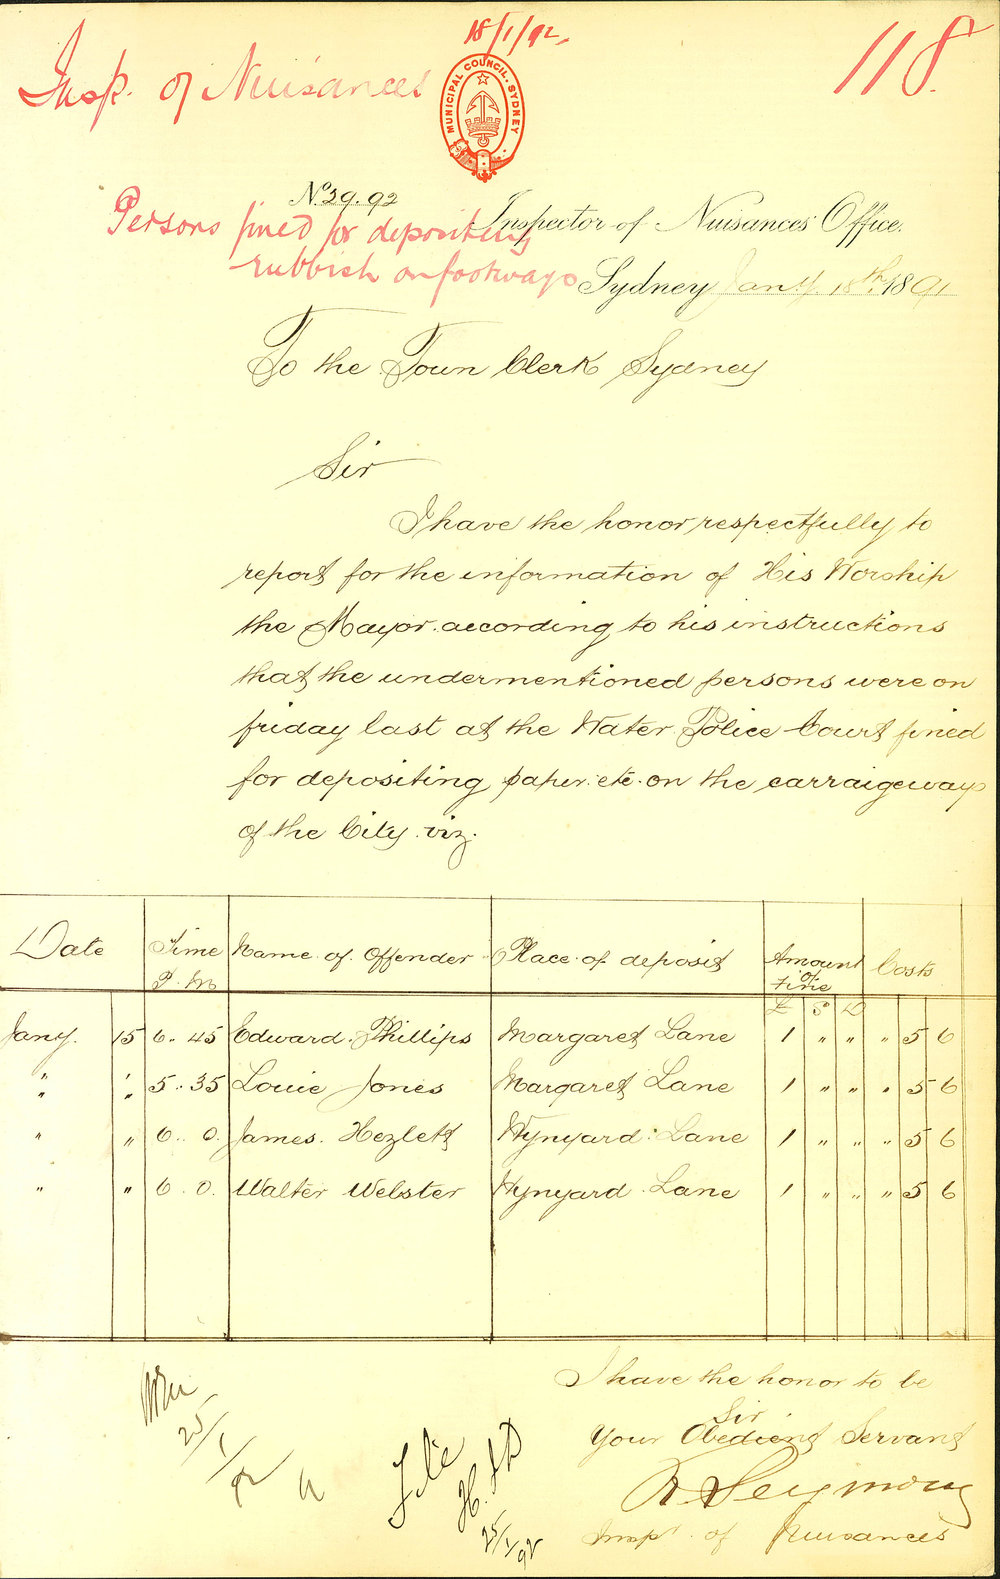 18/1/92.
118.
Insp. of Nuisances
MUNICIPAL COUNCIL. SYDNEY
No. 29.92
Persons fined for depositing
rubbish on footways
Inspector of Nuisances Office.
Sydney Jany. 18th. 1891
To the Town Clerk Sydney
Sir
I have the honor respectfully to
report for the information of His Worship
the Mayor. according to his instructions
that the undermentioned persons were on
friday last at the Water Police Court fined
for depositing paper. etc. on the carraigeways
of the City. viz.
Date Time P. M Name of Offender Place of deposit Amount of Fine Costs
£ S D
Jany. 15 6. 45 Edward. Phillips Margaret Lane 1 " " " 5 6
" " 5. 35 Louie Jones Margaret Lane 1 " " " 5 6
" " 6. 0. James. Hezlett Wynyard. Lane 1 " " " 5 6
" " 6. 0. Walter Webster Wynyard. Lane 1 " " " 5 6
I have the honor to be
Sir
Your Obedient Servant
R. Seymour
Inspr. of Nuisances
25/1/92
File
25/1/92